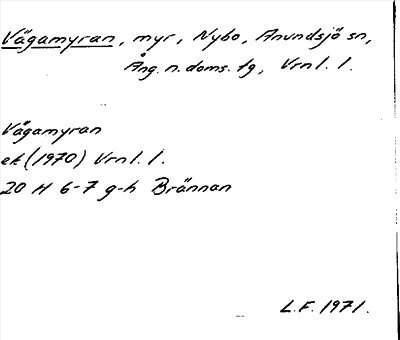 Vägamyran, myr, Nybo, Anundsjö sn,
Ång. n. doms. tg, Vrnl. l.
Vägamyran
ek (1970) Vrnl. l.
20 H 6-7 g-h Brännan
L.F. 1971.